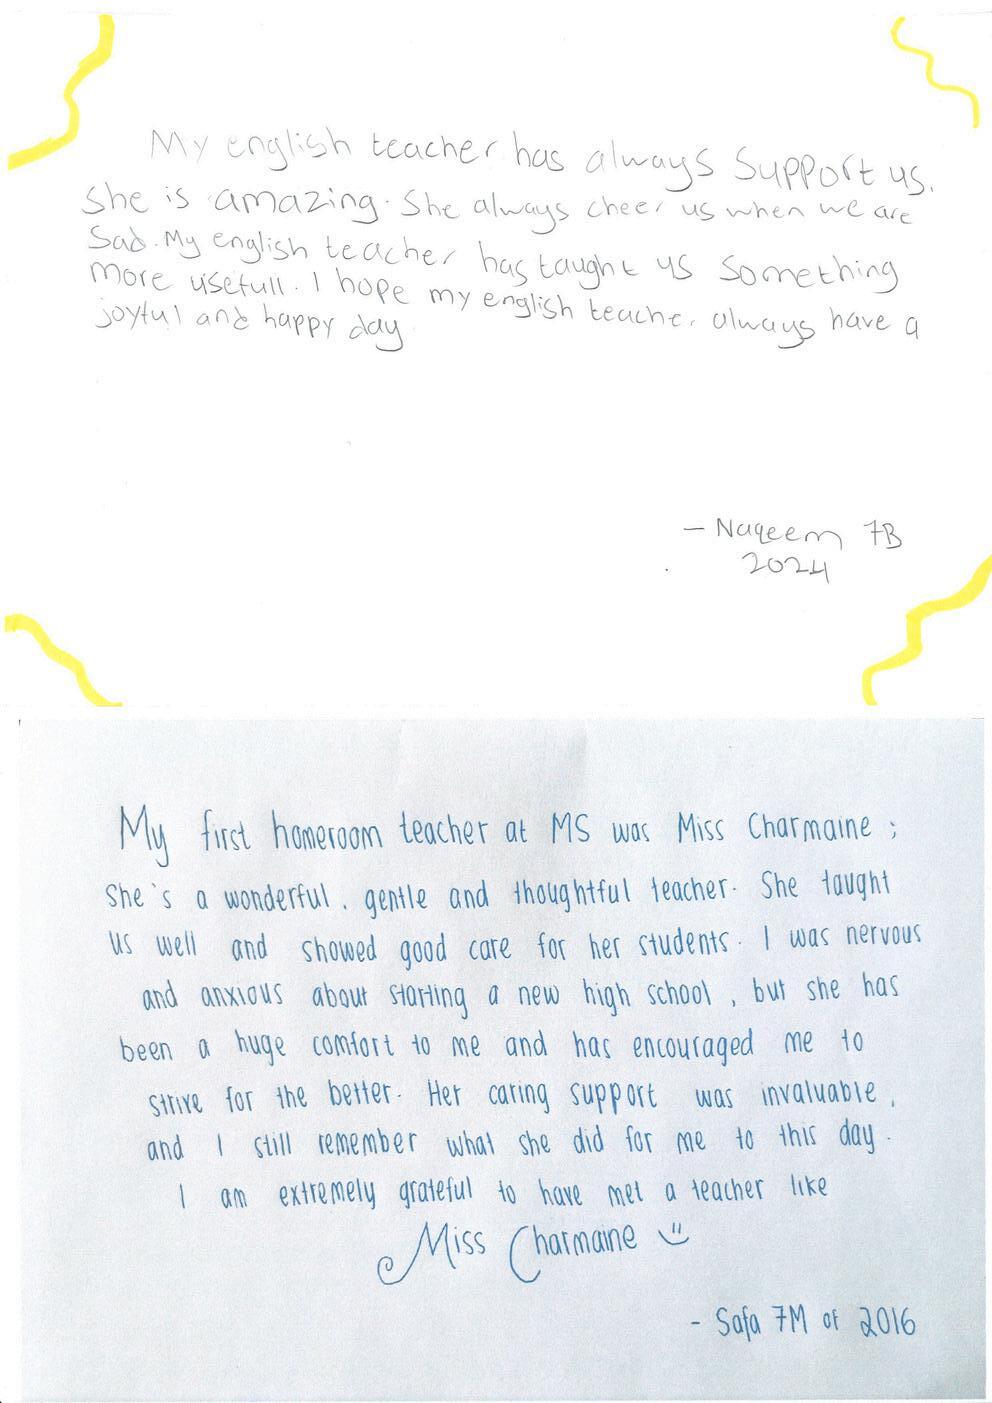 My english teacher has always support us.
She is amazing. She always cheer us when we are
Sad. My english teacher has taught us something
more usefull. I hope my english teacher always have a
joyful and happy day
– Naqeem 7B
2024
My first homeroom teacher at MS was Miss Charmaine ;
She's a wonderful, gentle and thoughtful teacher. She taught
us well and showed good care for her students. I was nervous
and anxious about starting a new high school, but she has
been a huge comfort to me and has encouraged me to
strive for the better. Her caring support was invaluable,
and I still remember what she did for me to this day.
I am extremely grateful to have met a teacher like
Miss Charmaine
- Safa 7M of 2016